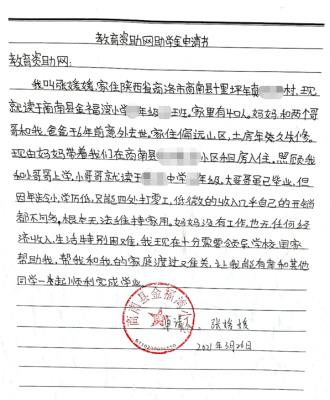 教育资助网助学金申请书
教育资助网:
我叫张媛媛,家住陕西省商洛市商南县十里坪镇 村,现
就读于商南县金福湾小 年级 班。家里有4口人。妈妈,和两个哥
哥和我,爸爸于6年前意外去世,家住偏远山区,土房年久失修。
现由妈妈带着我们在商南县 小区租房入住,照顾我
和小哥哥上学,小哥哥就读于 中学 年级,大哥哥虽已毕业,但
因年龄小,学历低,只能四处打零工,低微的收入几乎自己的开销
都不够,根本无法维持家用。妈妈没有工作,也无任何经
济收入,生活特别困难,我现在十分需要领导,学校,国家
帮助我,帮我和我的家庭渡过难关,让我能有幸和其他
同学一起顺利完成学业。
商南县金福湾小
申请人:张媛媛
2021年3月26日